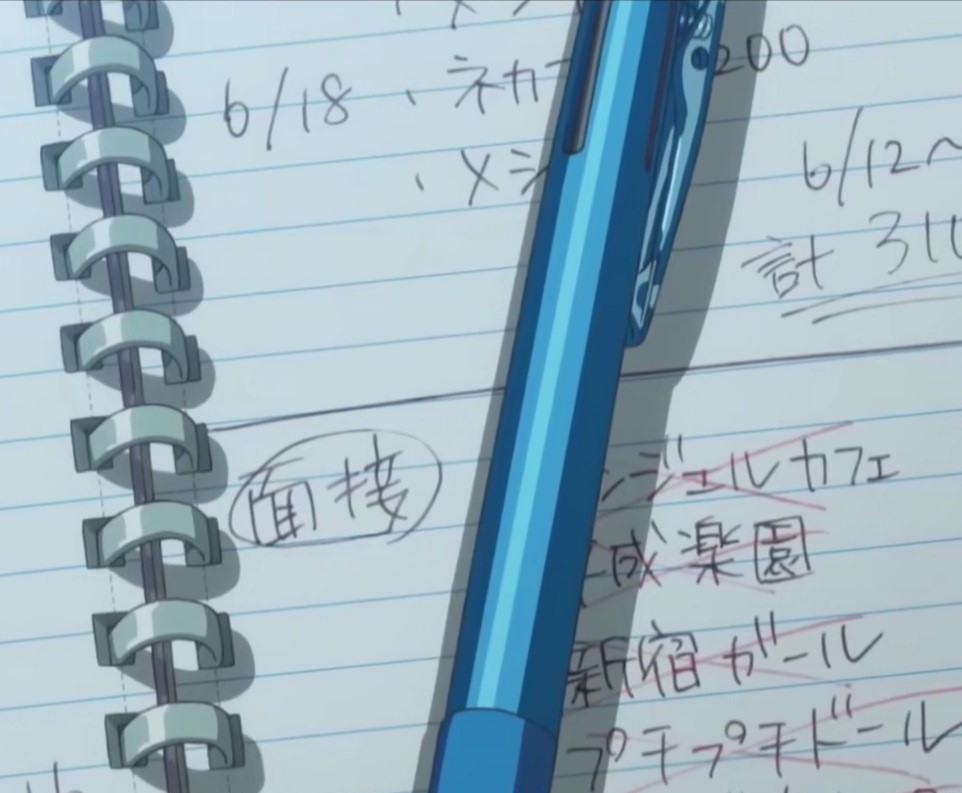 6/18 、ネカ 200
、メシ
6/12~
計 31
面接
ジェルカフェ
成楽園
新宿ガール
プチプチドール